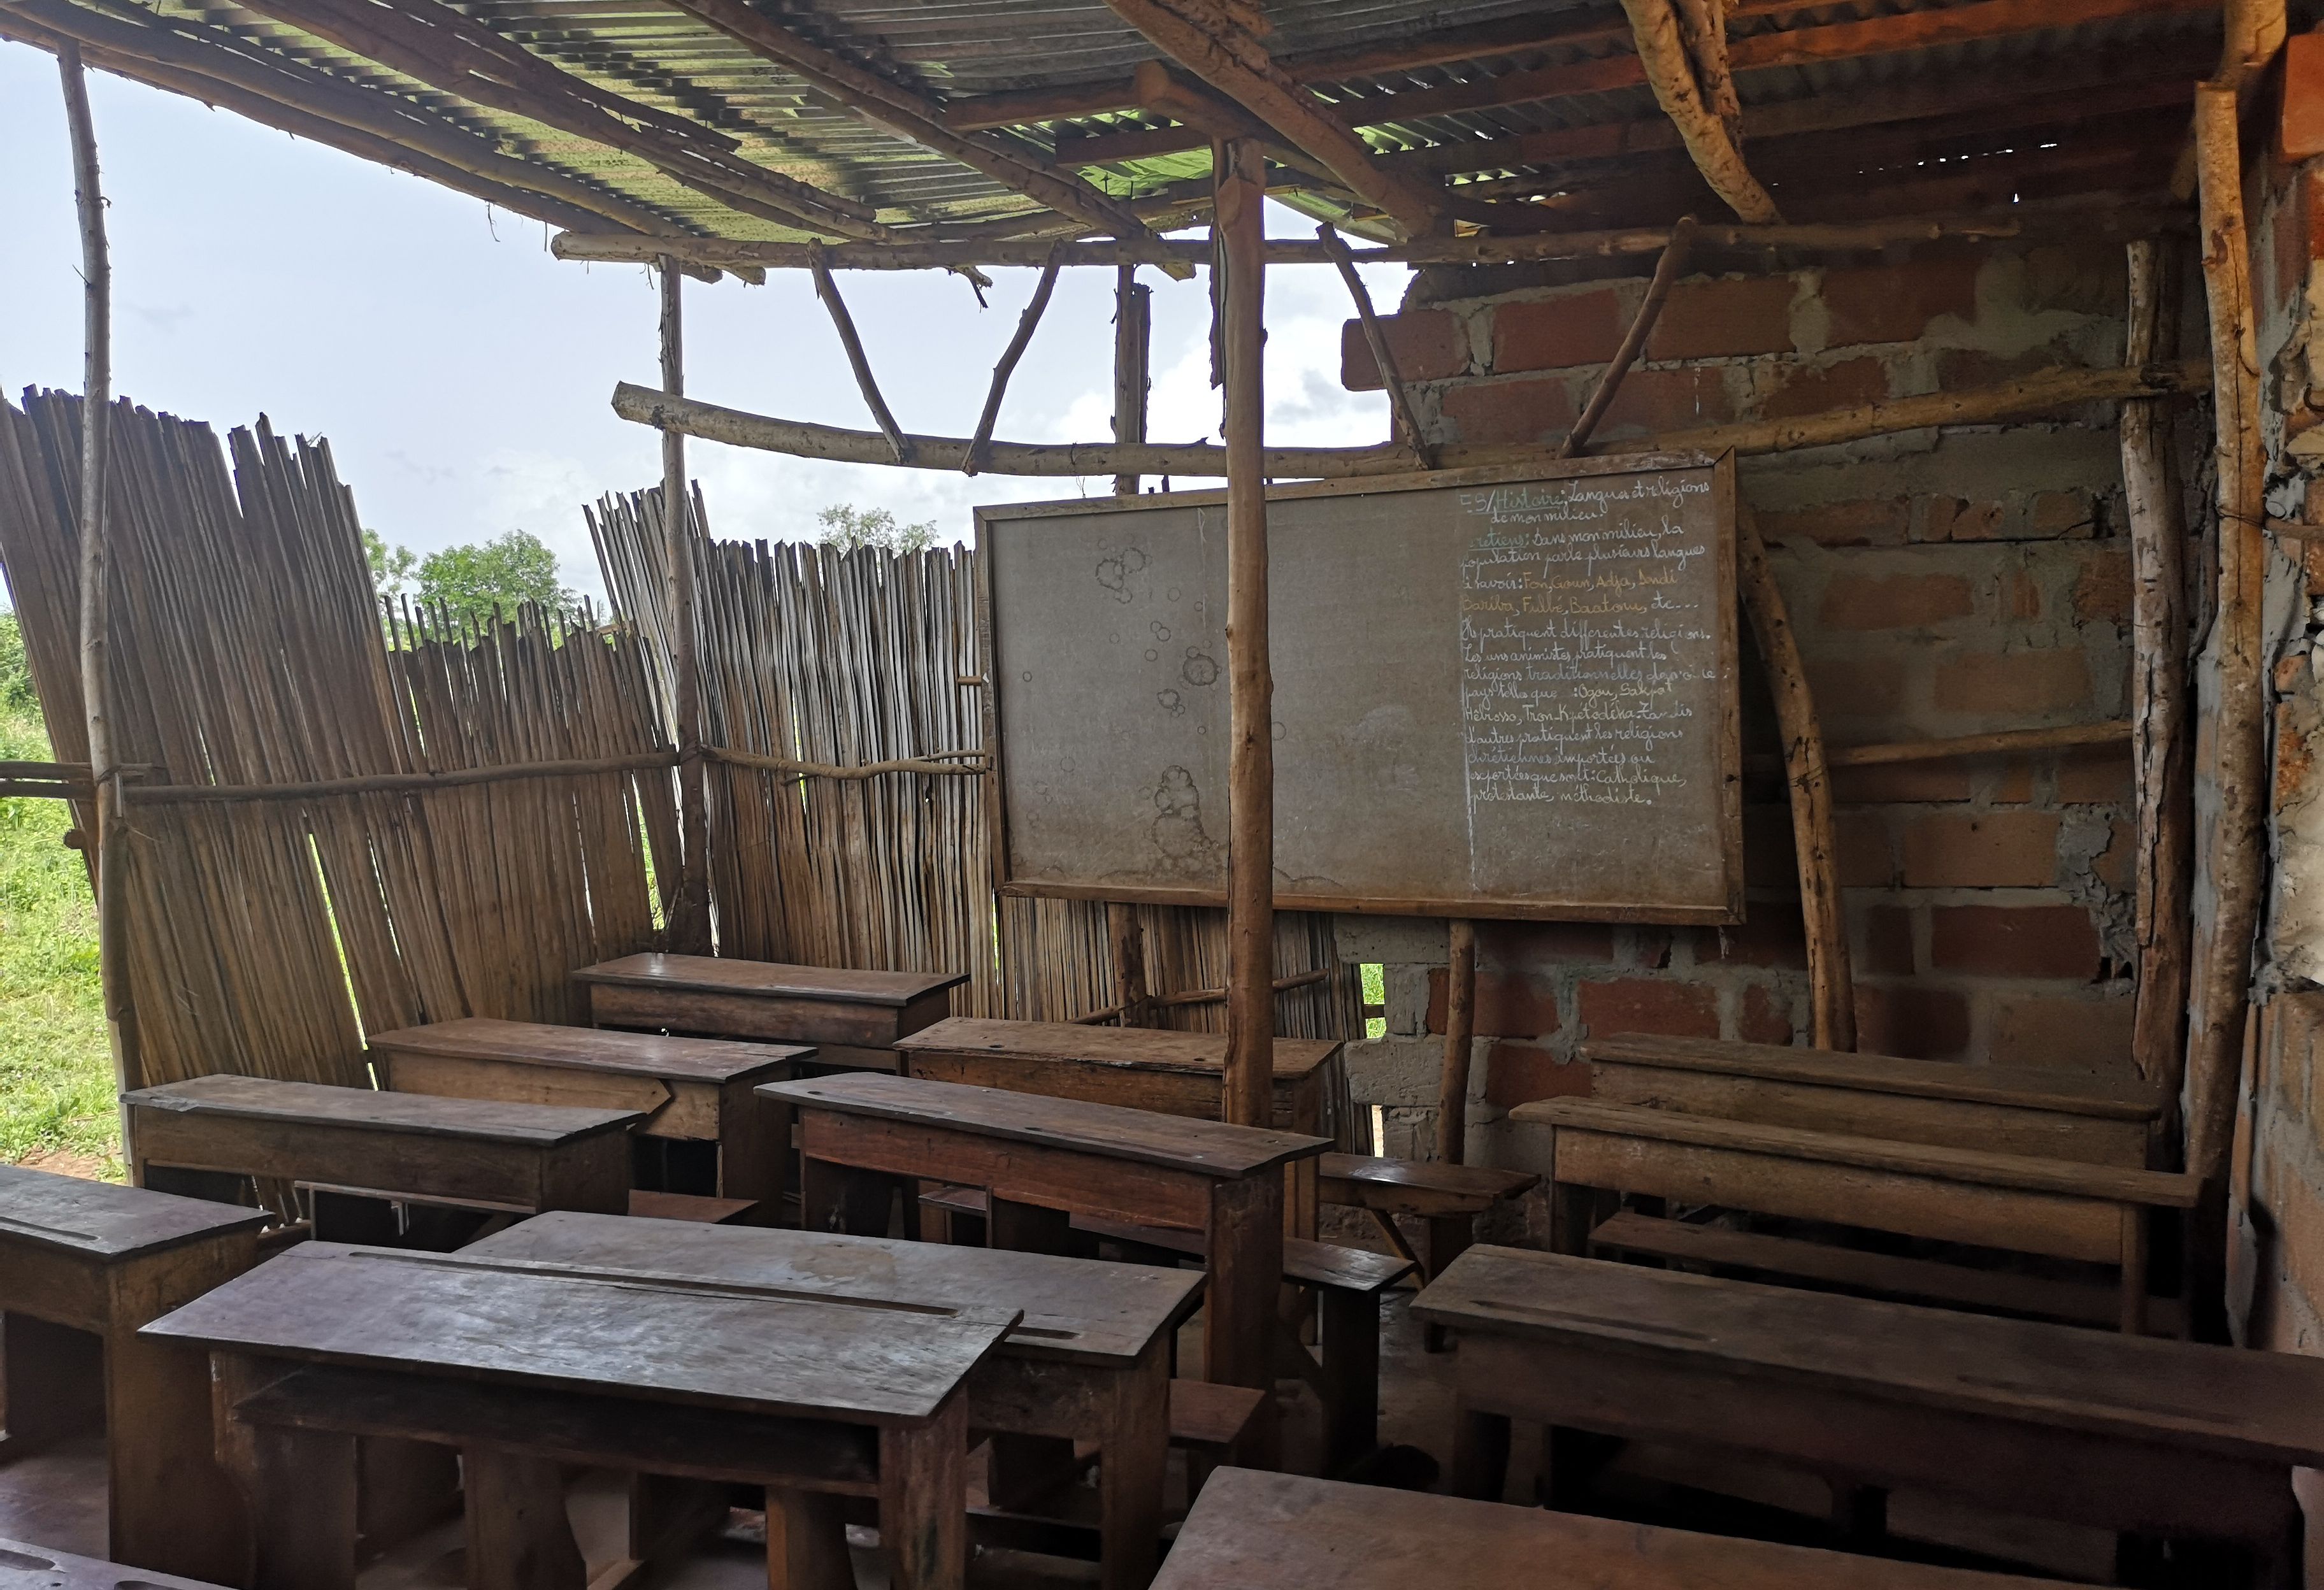 ES/Histoire: Langues et religions
de mon milieu.
Dans mon milieu, la
population parle plusieurs langues
à savoir: Fon, Goun, Adja, Dendi
Bariba, Fulbé, Baatonu, etc...
Ils pratiquent différentes religions.
Les uns animistes pratiquent les
religions traditionnelles
pays telle que : Ogou, Sakpat
Hêbiosso, Tron-Kpétodéka. Tandis
d'autres pratiquent les religions
chrétiennes importées ou
exportées que sont: Catholique,
protestante, méthodiste.